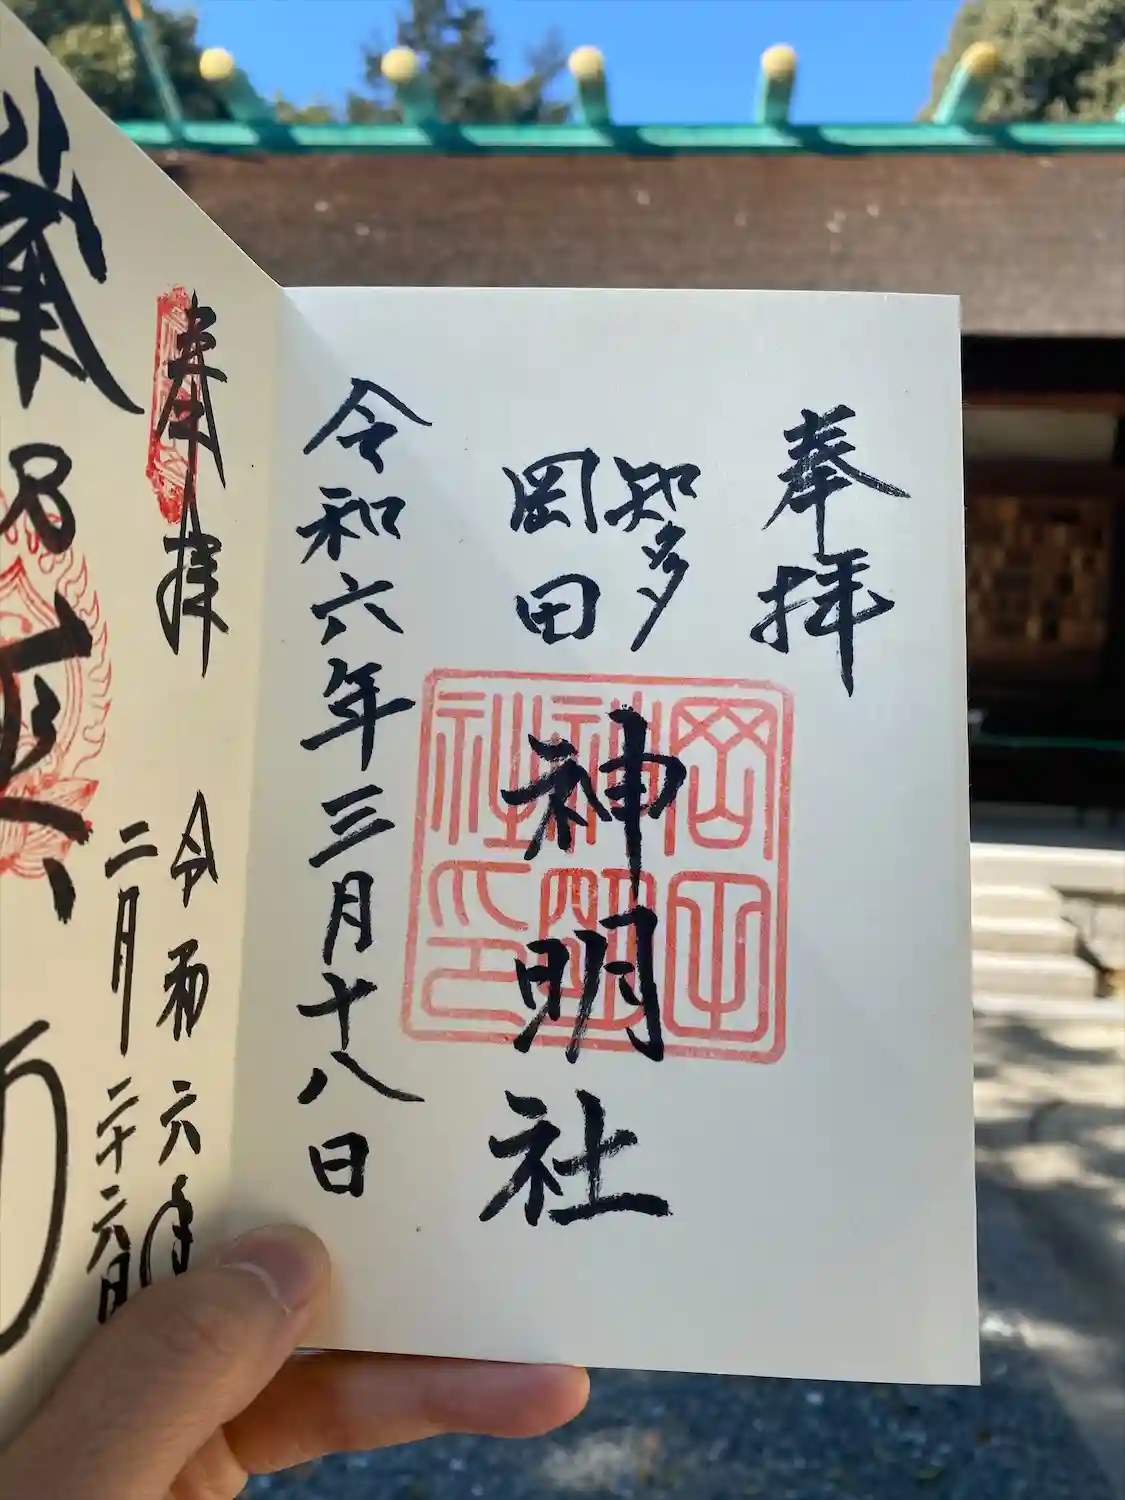 奉拝
知多
岡田
神明社
令和六年三月十八日
岡田
神明
社印
奉拝
令和六年
二月二十六日